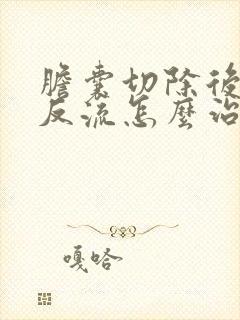 膽囊切除後
反流怎麼治
嘎哈